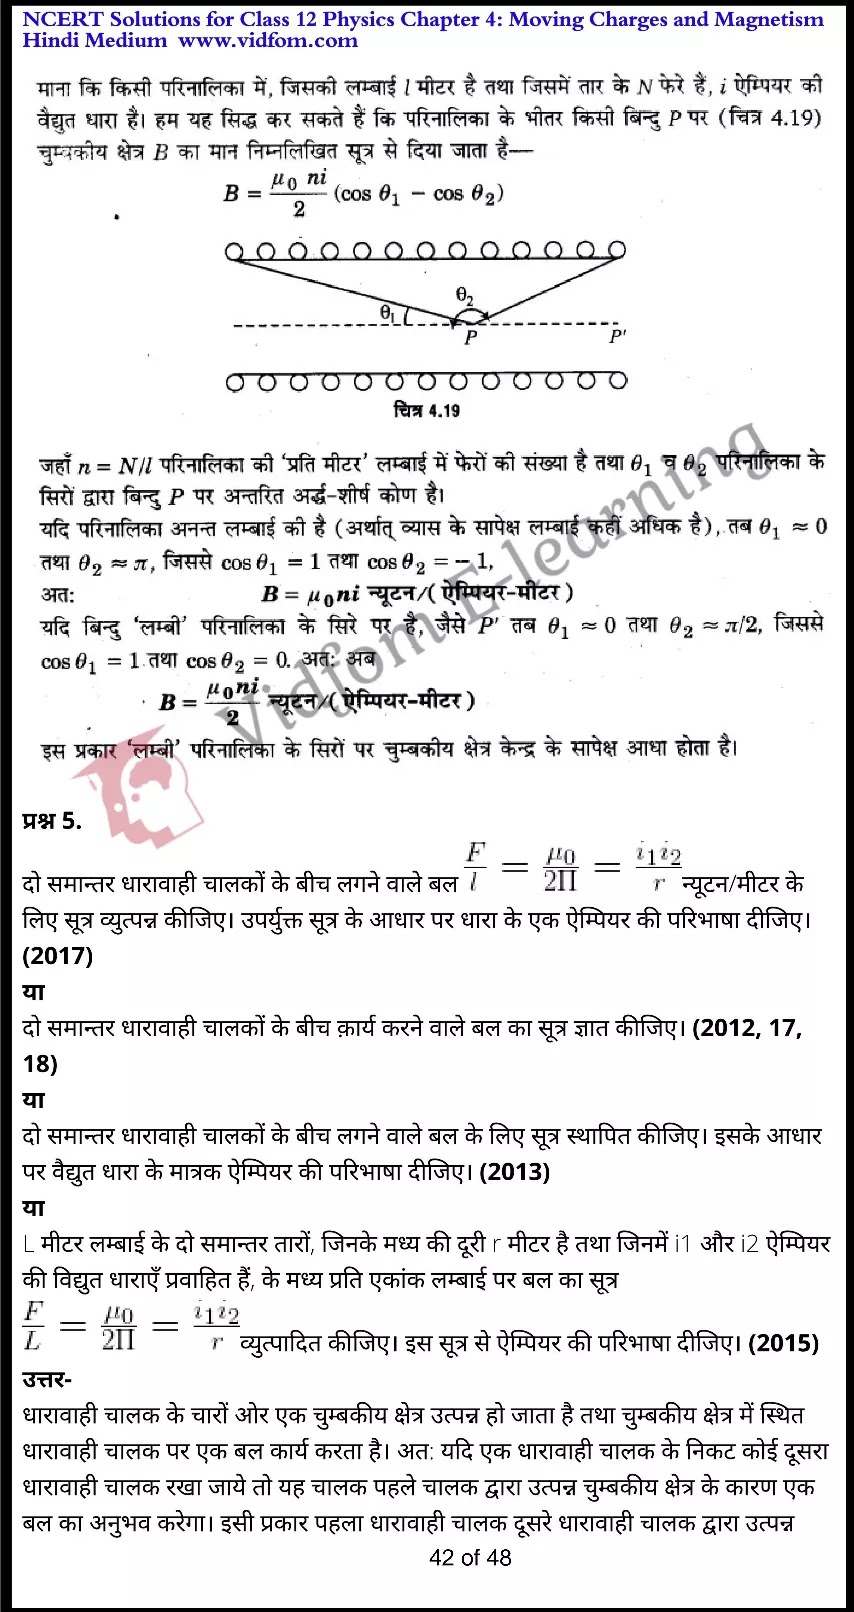 NCERT Solutions for Class 12 Physics Chapter 4: Moving Charges and Magnetism
Hindi Medium www.vidfom.com
माना कि किसी परिनालिका में, जिसकी लम्बाई l मीटर है तथा जिसमें तार के N फेरे हैं, i ऐम्पियर की
वैद्युत धारा है। हम यह सिद्ध कर सकते हैं कि परिनालिका के भीतर किसी बिन्दु P पर (चित्र 4.19)
चुम्बकीय क्षेत्र B का मान निम्नलिखित सूत्र से दिया जाता है—
B = μ0 ni / 2 (cos θ1 − cos θ2)
θ1 θ2
P P'
चित्र 4.19
जहाँ n = N/l परिनालिका की 'प्रति मीटर' लम्बाई में फेरों की संख्या है तथा θ1 व θ2 परिनालिका के
सिरों द्वारा बिन्दु P पर अन्तरित अर्द्ध-शीर्ष कोण है।
यदि परिनालिका अनन्त लम्बाई की है (अर्थात् व्यास के सापेक्ष लम्बाई कहीं अधिक है), तब θ1 ≈ 0
तथा θ2 ≈ π, जिससे cos θ1 = 1 तथा cos θ2 = − 1,
अतः B = μ0ni न्यूटन/(ऐम्पियर-मीटर)
यदि बिन्दु 'लम्बी' परिनालिका के सिरे पर है, जैसे P' तब θ1 ≈ 0 तथा θ2 ≈ π/2, जिससे
cos θ1 = 1 तथा cos θ2 = 0. अतः अब
B = μ0ni / 2 न्यूटन/(ऐम्पियर-मीटर)
इस प्रकार 'लम्बी' परिनालिका के सिरों पर चुम्बकीय क्षेत्र केन्द्र के सापेक्ष आधा होता है।
Vidfom E-learning
प्रश्न 5.
दो समान्तर धारावाही चालकों के बीच लगने वाले बल F/l = μ0/2Π = i1i2/r न्यूटन/मीटर के
लिए सूत्र व्युत्पन्न कीजिए। उपर्युक्त सूत्र के आधार पर धारा के एक ऐम्पियर की परिभाषा दीजिए।
(2017)
या
दो समान्तर धारावाही चालकों के बीच क़ार्य करने वाले बल का सूत्र ज्ञात कीजिए। (2012, 17,
18)
या
दो समान्तर धारावाही चालकों के बीच लगने वाले बल के लिए सूत्र स्थापित कीजिए। इसके आधार
पर वैद्युत धारा के मात्रक ऐम्पियर की परिभाषा दीजिए। (2013)
या
L मीटर लम्बाई के दो समान्तर तारों, जिनके मध्य की दूरी r मीटर है तथा जिनमें i1 और i2 ऐम्पियर
की विद्युत धाराएँ प्रवाहित हैं, के मध्य प्रति एकांक लम्बाई पर बल का सूत्र
F/L = μ0/2Π = i1i2/r व्युत्पादित कीजिए। इस सूत्र से ऐम्पियर की परिभाषा दीजिए। (2015)
उत्तर-
धारावाही चालक के चारों ओर एक चुम्बकीय क्षेत्र उत्पन्न हो जाता है तथा चुम्बकीय क्षेत्र में स्थित
धारावाही चालक पर एक बल कार्य करता है। अत: यदि एक धारावाही चालक के निकट कोई दूसरा
धारावाही चालक रखा जाये तो यह चालक पहले चालक द्वारा उत्पन्न चुम्बकीय क्षेत्र के कारण एक
बल का अनुभव करेगा। इसी प्रकार पहला धारावाही चालक दूसरे धारावाही चालक द्वारा उत्पन्न
42 of 48